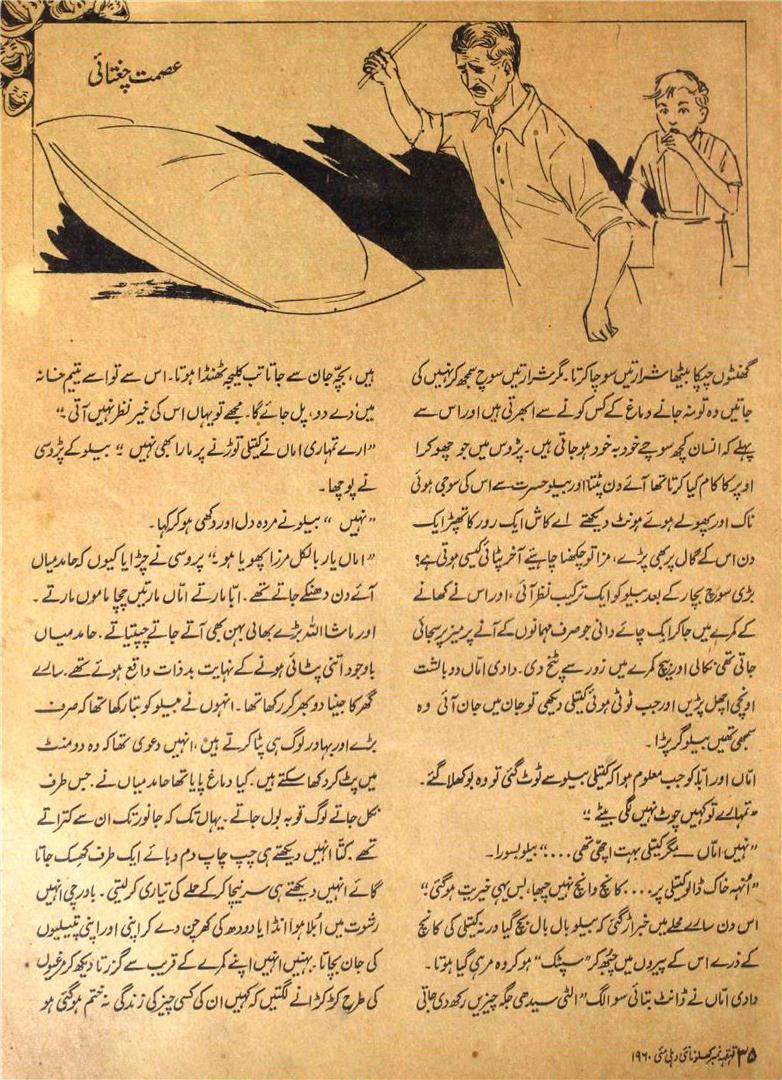 عصمت چغتائی
گھنٹوں چپکا بیٹھا شرارتیں سوچا کرتا۔ مگر شرارتیں سوچ سمجھ کر نہیں کی
جاتیں وہ تو نہ جانے دماغ کے کس کونے سے ابھرتی ہیں اور اس سے
پہلے کہ انسان کچھ سوچے خود بہ خود ہو جاتی ہیں۔ پڑوس میں جو چھوکرا
اوپر کا کام کیا کرتا تھا آئے دن پٹتا اور ببلو حسرت سے اس کی سوجی ہوئی
ناک اور پھولے ہوئے ہونٹ دیکھتے اے کاش ایک زور کا تھپڑ ایک
دن اس کے گال پر بھی پڑے، مزا تو چکھنا چاہیئے آخر پٹائی کیسی ہوتی ہے؟
بڑی سوچ بچار کے بعد ببلو کو ایک ترکیب نظر آئی، اور اس نے کھانے
کے کمرے میں جا کر ایک چائے دانی جو صرف مہمانوں کے آنے پر میز پر سجائی
جاتی تھی نکالی اور بیچ کمرے میں زور سے پٹخ دی۔ دادی اماں دو بالشت
اونچی اچھل پڑیں اور جب ٹوٹی ہوئی کیتلی دیکھی تو جان میں جان آئی وہ
سمجھی تھیں ببلو گر پڑا۔
اماں اور ابا کو جب معلوم ہوا کہ کیتلی ببلو سے ٹوٹ گئی تو وہ بوکھلا گئے۔
"تمہارے تو کہیں چوٹ نہیں لگی بیٹے؟"
"نہیں اماں ــ مگر کیتلی بہت اچھی تھی...." ببلو بسورا۔
"اُنہہ خاک ڈالو کیتلی پر.... کانچ وانچ نہیں چبھا، بس یہی خیریت ہو گئی"
اس دن سارے محلے میں خبر اڑ گئی کہ ببلو بال بال بچ گیا ورنہ کیتلی کی کانچ
کے ذرے اس کے پیروں میں چبھ کر "سپٹک" ہو کر وہ مر ہی گیا ہوتا۔
دادی اماں نے ڈانٹ بتائی سو الگ "الٹی سیدھی جگہ چیزیں رکھ دی جاتی
ہیں، بچہ جان سے جاتا تب کلیجہ ٹھنڈا ہوتا۔ اس سے تو اسے یتیم خانہ
میں دے دو، پل جائے گا۔ مجھے تو یہاں اس کی خیر نظر نہیں آتی۔"
"ارے تمہاری اماں نے کیتلی توڑنے پر مارا بھی نہیں" ببلو کے پڑوسی
نے پوچھا۔
"نہیں" ببلو نے مردہ دل اور دکھی ہو کر کہا۔
"اماں یار بالکل مرزا پھویا ہو" پڑوسی نے چڑایا کیوں کہ حامد میاں
آئے دن دھنکے جاتے تھے۔ ابا مارتے اماں مارتیں چچا ماموں مارتے۔
اور ماشا اللہ بڑے بھائی بہن بھی آتے جاتے چپتیاتے۔ حامد میاں
باوجود اتنی پٹائی ہونے کے نہایت بدذات واقع ہوئے تھے۔ سارے
گھر کا جینا دوبھر کر رکھا تھا۔ انہوں نے ببلو کو بتا رکھا تھا کہ صرف
بڑے اور بہادر لوگ ہی پٹا کرتے ہیں، انہیں دعوی تھا کہ وہ دو منٹ
میں پٹ کر دکھا سکتے ہیں۔ کیا دماغ پایا تھا حامد میاں نے۔ جس طرف
نکل جاتے لوگ توبہ بول جاتے۔ یہاں تک کہ جانور تک ان سے کتراتے
تھے۔ کتا انہیں دیکھتے ہی چپ چاپ دم دبائے ایک طرف کھسک جاتا
گائے انہیں دیکھتے ہی سر نیچا کر کے حملے کی تیاری کر لیتی۔ باورچی انہیں
رشوت میں اُبلا ہوا انڈا یا دودھ کی کھرچن دے کر اپنی اور اپنی پتیلیوں
کی جان بچاتا۔ بہنیں انہیں اپنے کمرے کے قریب سے گزرتا دیکھ کر مرغیوں
کی طرح کڑکڑانے لگتیں کہ کہیں ان کی کسی چیز کی زندگی نہ ختم ہو گئی ہو
۳۵ قہقہہ نمبر کھلونا نئی دہلی مئی ۱۹۶۰